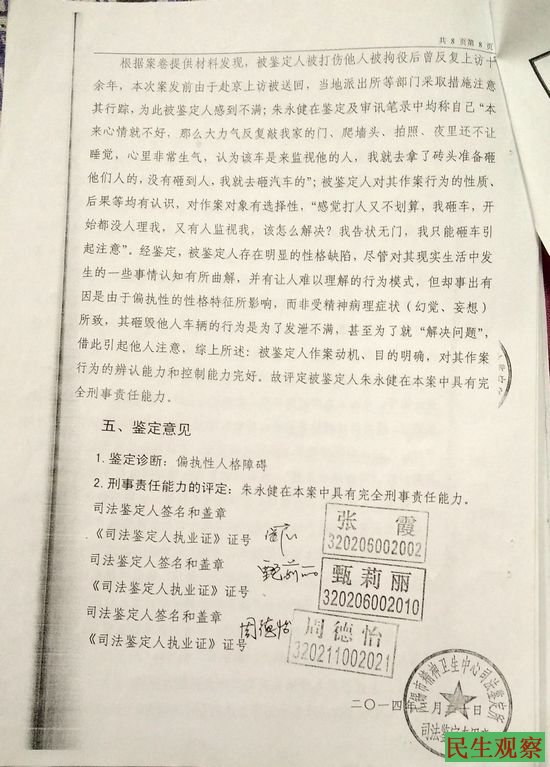 共 8 页第 8 页
根据案卷提供材料发现，被鉴定人被打伤他人被拘役后曾反复上访十
余年，本次案发前由于赴京上访被送回，当地派出所等部门采取措施注意
其行踪，为此被鉴定人感到不满；朱永健在鉴定及审讯笔录中均称自己“本
来心情就不好，那么大力气反复敲我家的门、爬墙头、拍照、夜里还不让
睡觉，心里非常生气，认为该车是来监视他的人，我就去拿了砖头准备砸
他们人的，没有砸到人，我就去砸汽车的”；被鉴定人对其作案行为的性质、
后果等均有认识，对作案对象有选择性，“感觉打人又不划算，我砸车，开
始都没人理我，又有人监视我，该怎么解决？我告状无门，我只能砸车引
起注意”。经鉴定，被鉴定人存在明显的性格缺陷，尽管对其现实生活中发
生的一些事情认知有所曲解，并有让人难以理解的行为模式，但却事出有
因是由于偏执性的性格特征所影响，而非受精神病理症状（幻觉、妄想）
所致，其砸毁他人车辆的行为是为了发泄不满，甚至为了就“解决问题”，
借此引起他人注意，综上所述：被鉴定人作案动机、目的明确，对其作案
行为的辨认能力和控制能力完好。故评定被鉴定人朱永健在本案中具有完
全刑事责任能力。
五、鉴定意见
1. 鉴定诊断：偏执性人格障碍
2. 刑事责任能力的评定：朱永健在本案中具有完全刑事责任能力。
司法鉴定人签名和盖章
《司法鉴定人执业证》证号
张霞
320206002002
司法鉴定人签名和盖章
甄莉丽
《司法鉴定人执业证》证号
甄莉丽
320206002010
司法鉴定人签名和盖章
周德怡
《司法鉴定人执业证》证号
周德怡
320211002021
二〇一四年 月 日
市精神卫生中心司法鉴定所
司法鉴定专用章
民生观察